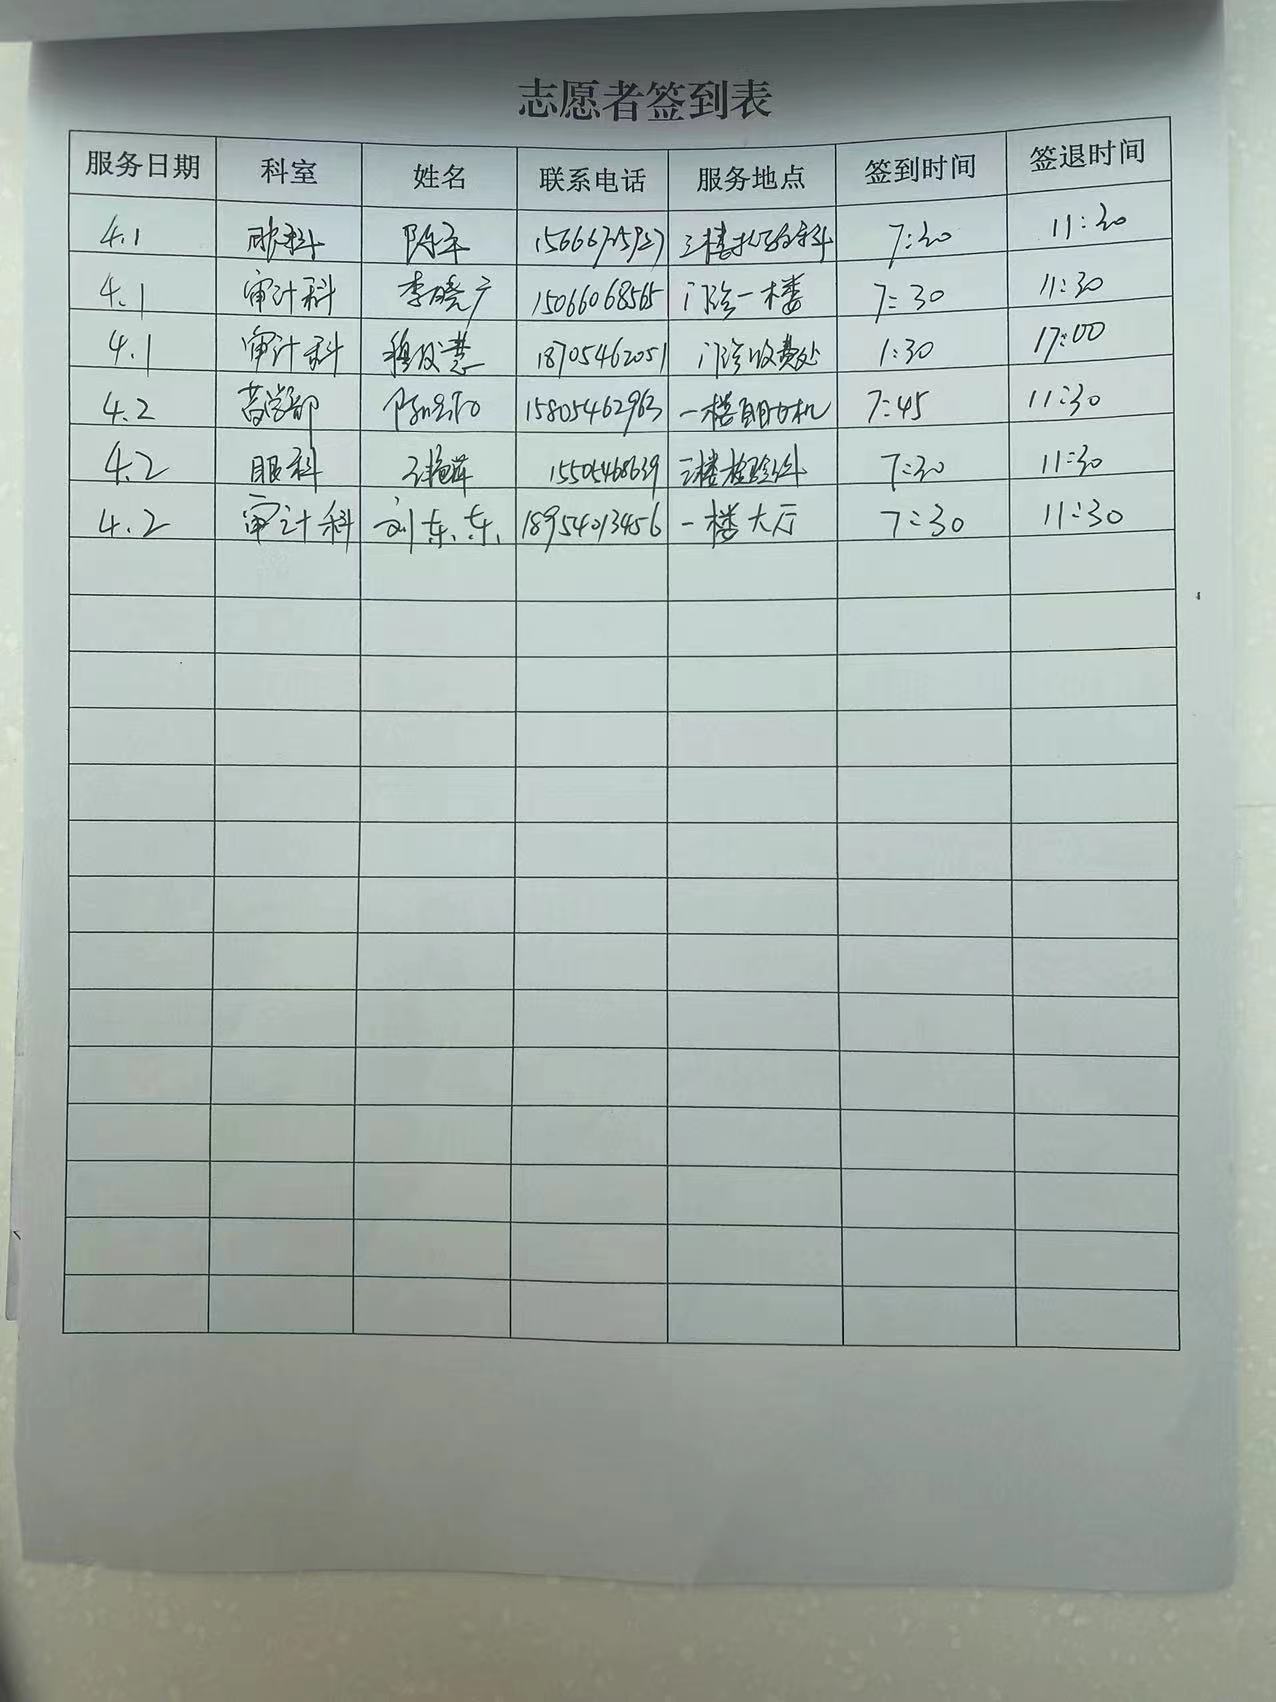 志愿者签到表
服务日期 科室 姓名 联系电话 服务地点 签到时间 签退时间
4.1 眼科 陈军 7:30 11:30
4.1 审计科 李晓广 15066068565 门诊一楼 7:30 11:30
4.1 审计科 18705462051 门诊收费处 1:30 17:00
4.2 药学部 15805462963 一楼自助机 7:45 11:30
4.2 眼科 15505468639 三楼检验科 7:30 11:30
4.2 审计科 刘东东 18954013456 一楼大厅 7:30 11:30